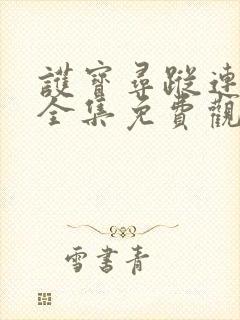 護寶尋蹤連
全集免費觀
雪書青